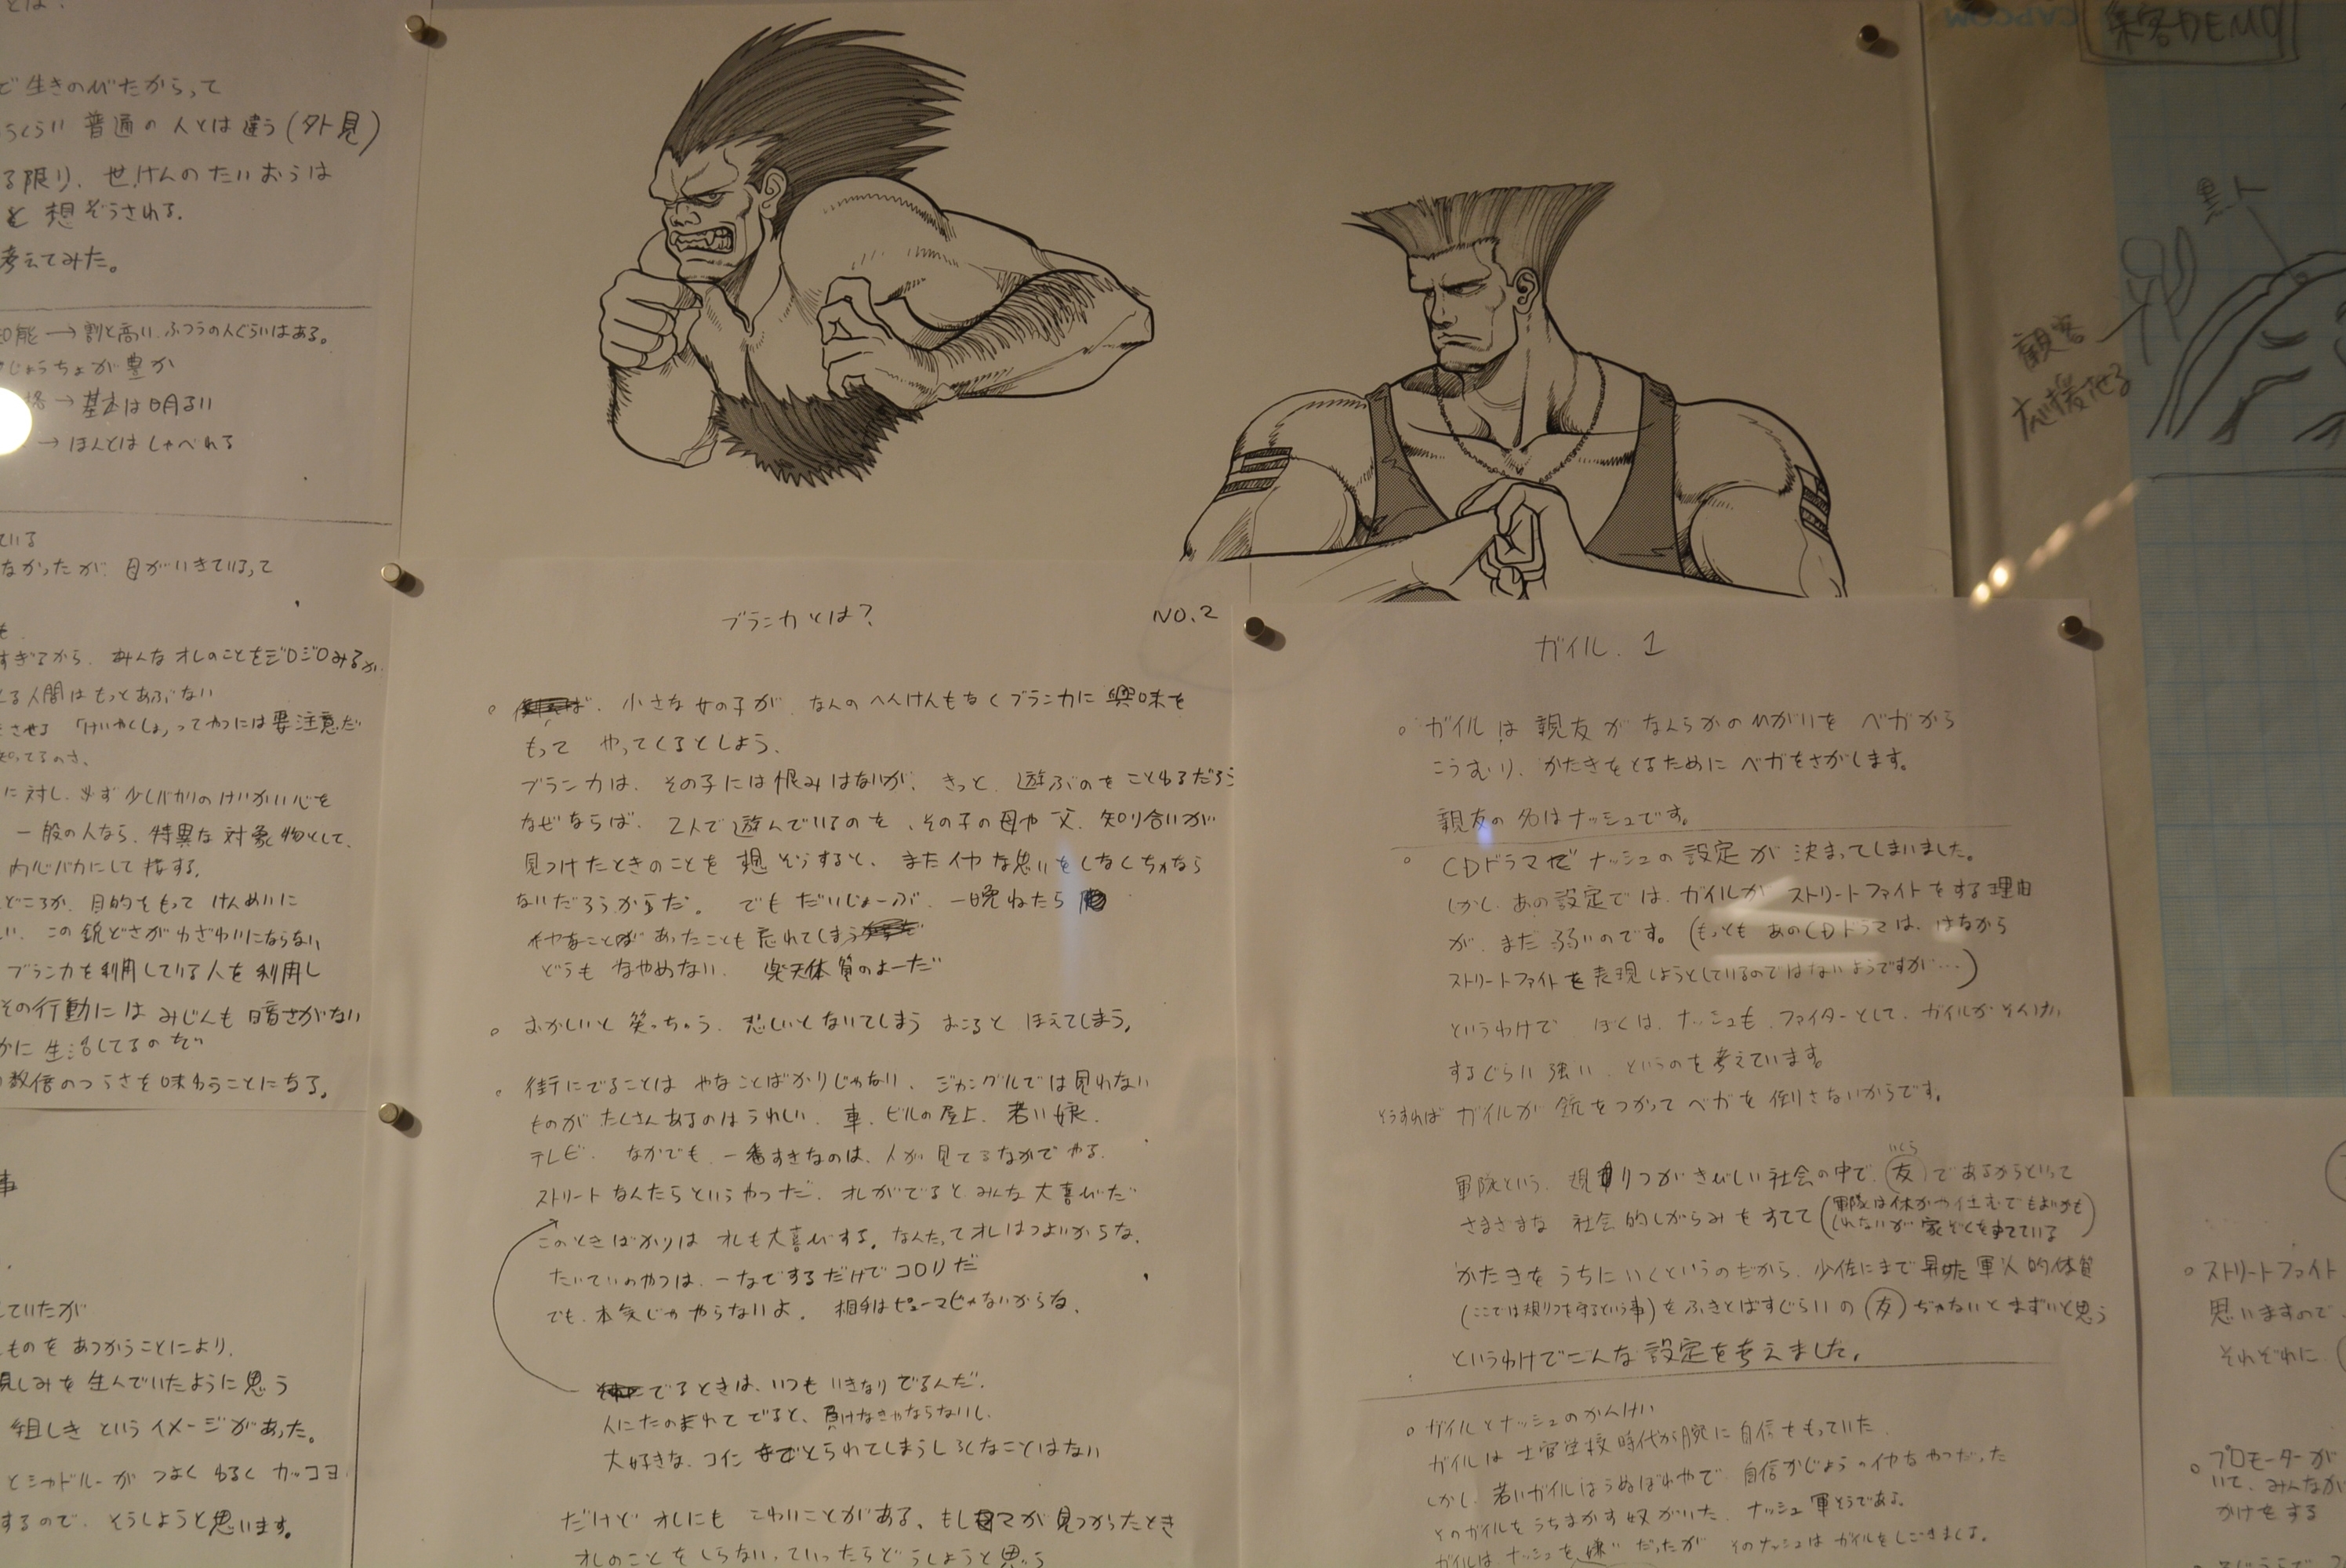 とは.
ど生きのびたからって
くらい 普通の人とは違う(外見)
る限り、世けんのたいおうは
と想ぞうされる.
考えてみた。
知能→割と高い.ふつうの人ぐらいはある。
じょうちょが豊か
格→基本は明るい
→ほんとはしゃべれる
ている
なかったが、母がいきているって
すぎるから、みんなオレのことをジロジロみるが
る人間はもっとあぶない
させる「けいやくしょ」ってやつには要注意だ
知ってるのさ、
に対し、必ず少しバカリのけいかい心を
一般の人なら、特異な対象物として、
内心バカにして接する.
どころか、目的をもって けんめいに
い、この鋭どさがわざわいにならない
ブランカを利用している人を利用し
その行動には みじんも暗さがない
かに生活してるので
数倍のつらさを味わうことになる.
事
ていたが
ものを あつかうことにより、
見しみを生んでいたように思う
組しき というイメージがあった。
とシャドルーが つよく わるく カッコヨ
するので、そうしようと思います。
ブランカとは?
NO.2
。小さな女の子が、なんのへんけんもなくブランカに興味を
もって やってくるとしよう、
ブランカは、その子には恨みはないが、きっと、遊ぶのをことわるだろう
なぜならば、2人で遊んでいるのを、その子の母や父、知り合いが
見つけたときのことを想ぞうすると、またイヤな思いをしなくちゃなら
ないだろうからだ。でもだいじょーぶ、一晩ねたら
イヤなことがあったことも忘れてしまう
どうもなやめない、楽天体質のよーだ
。おかしいと笑っちゃう、悲しいとないてしまう おこると ほえてしまう。
。街にでることは やなことばかりじゃない、ジャングルでは見れない
ものが たくさんあるのはうれしい、車、ビルの屋上、若い娘、
テレビ、なかでも、一番すきなのは、人が見てるなかでやる、
ストリートなんたらというやつだ、オレがでるとみんな大喜びだ
このときばかりは オレも大喜びする。なんたってオレはつよいからな、
たいていのやつは、一なでするだけでコロリだ
でも、本気じゃやらないよ、相手はピューマじゃないからな、
でるときは、いつも いきなり でるんだ.
人にたのまれて でると、負けなきゃならないし、
大好きな、コインまでとられてしまうしろくなことはない
だけど オレにも こわいことがある、もしママが見つかったとき
オレのことをしらない、ていったらどうしようと思う
ガイル. 1
。ガイルは親友がなんらかのひがいを ベガから
こうむり、かたきをとるためにベガをさがします。
親友の名はナッシュです。
。CDドラマでナッシュの設定が決まってしまいました。
しかし、あの設定では、ガイルがストリートファイトをする理由
が、まだ弱いのです。(もっともあのCDドラマは、はなから
ストリートファイトを表現しようとしているのではないようですが…)
というわけで ぼくは、ナッシュも、ファイターとして、ガイルがそんけい
するぐらい強い、というのを考えています。
そうすれば ガイルが銃をつかってベガを倒さないからです。
いくら
軍隊という、規りつがきびしい社会の中で、友であるからといって
さまざまな 社会的しがらみをすてて(軍隊は休かや仕むでもよいかも
しれないが家ぞくをすてている)
かたきをうちにいくというのだから、少佐にまで昇進 軍人的体質
(ここでは規りつを守るという事)をふきとばすぐらいの友ぢゃないとまずいと思う
というわけでこんな設定を考えました。
。ガイルとナッシュのかんけい
ガイルは士官学校時代から腕に自信をもっていた.
しかし、若いガイルはうぬぼれやで、自信かじょうのイヤなやつだった
そのガイルをうちまかす奴がいた、ナッシュ軍そうである。
ガイルは、ナッシュを嫌いだったが そのナッシュはガイルをしごきました.
CAPCOM
集客DEMO
黒人
観客
応援する
。ストリートファイト
思いますので、
それぞれに、(
。プロモーターが
いて、みんなが
かけをする